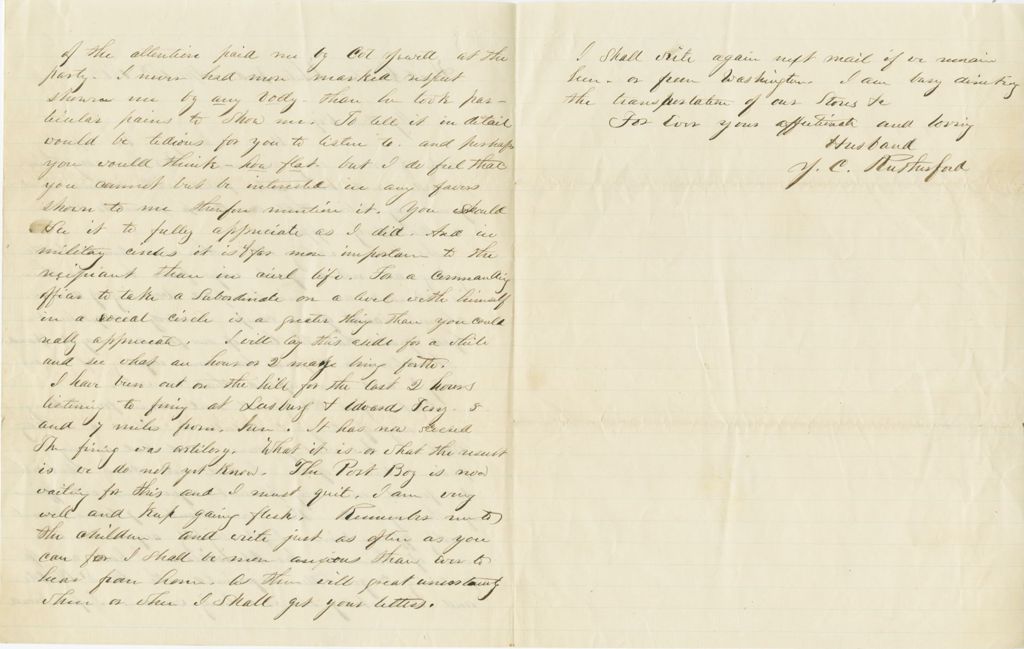 of the attention paid me by Col Jewett at the
party. I never had more marked respect
shown me by any body. than he took par-
ticular pains to show me. To tell it in detail
would be tedious for you to listen to. and perhaps
you would think - how flat. but I do feel that
you cannot but be interested in any favors
shown to me therefore mention it. You should
see it to fully appreciate as I did. And in
military circles it is far more important to the
recipiant than in civil life. For a commanding
officer to take a Subordinate on a level with himself
in a social circle is a greater thing than you could
really appreciate. I will lay this aside for a while
and see what an hour or 2 may bring forth.
I have been out on the hill for the last 2 hours
listening to firing at Leesburg & Edwards Fery. 5
and 7 miles from here. It has now ceased
The firing was artilery. What it is or what the result
is we do not yet know. The Post Boy is now
waiting for this and I must quit. I am very
well and keep gaing flesh. Remember me to
the children. and write just as often as you
can for I shall be more anxious than ever to
hear from home. as there will great uncertainty
when or where I shall get your letters.
I shall write again next mail if we remain
here. or from Washington. I am busy directing
the transportation of our Stores &c
For Ever your affectionate and loving
Husband
J. C. Rutherford